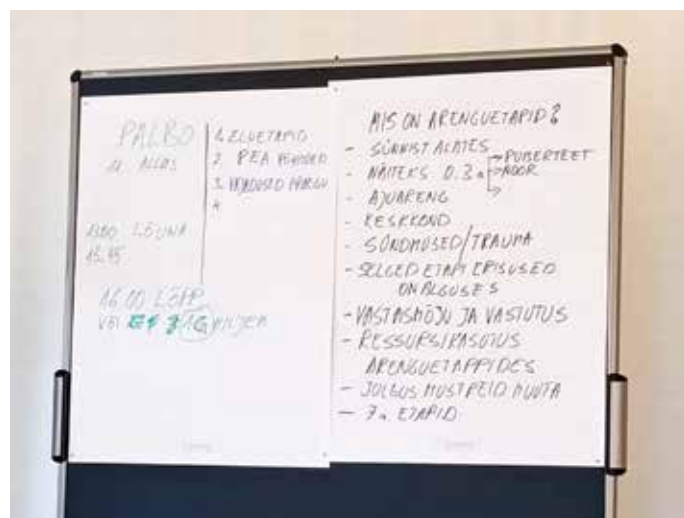 PALBO
11 ALLAS
13.00 LÕUNA
15.45
16.00 LÕPP
VÕI
1. ELUETAPID
2. PEA
3. VAJADUSED PRAEGU
4
MIS ON ARENGUETAPID?
- SÜNNIST ALATES
- NÄITEKS 0.3a → PUBERTEET
→ NOOR
→
- AJUARENG
- KESKKOND
- SÜNDMUSED/TRAUMA
- SELGED ETAPI ERISUSED
ON ALGUSES
- VASTASMÕJU JA VASTUTUS
- RESSURSIKASUTUS
ARENGUETAPPIDES
- JULGUS MUSTREID MUUTA
- 7a ETAPID